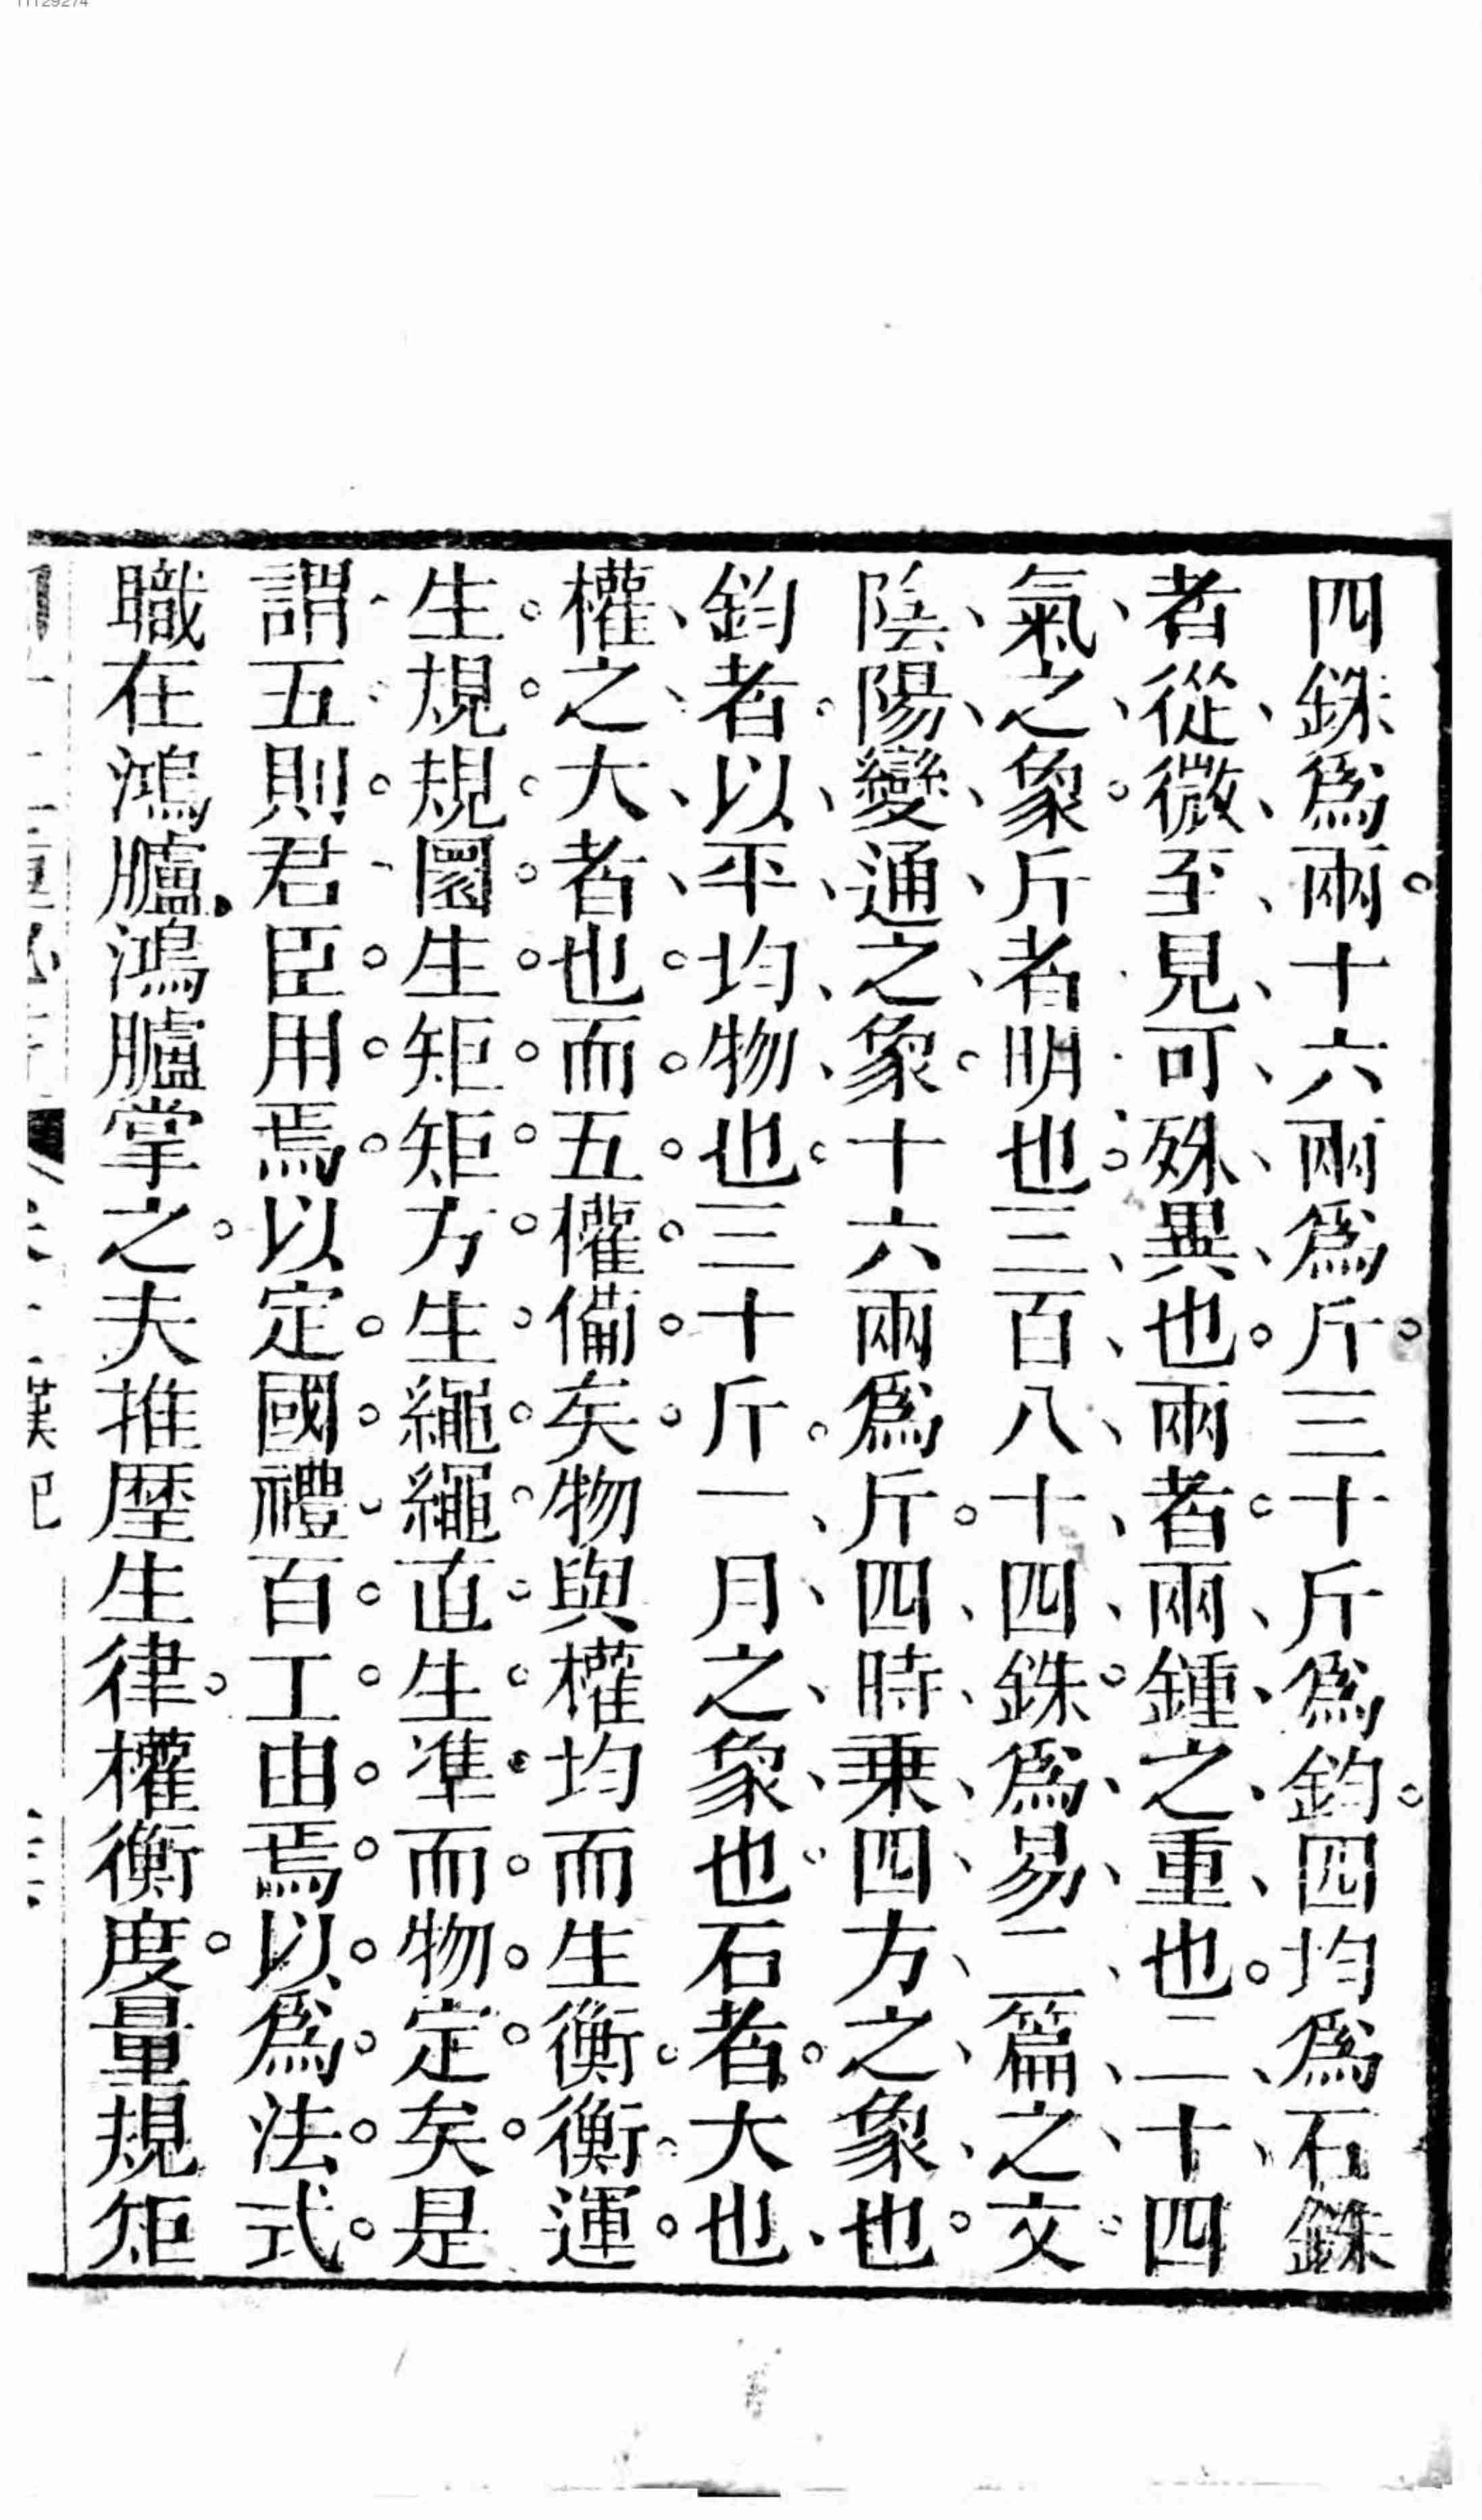 四銖爲兩十六兩爲斤三十斤爲鈞四均爲石銖
者從微至見可殊異也兩者兩鍾之重也二十四
氣之象斤者明也三百八十四銖爲易二篇之文
陰陽變通之象十六兩爲斤四時乗四方之象也
鈞者以平均物也三十斤一月之象也石者大也
權之大者也而五權備矣物與權均而生衡衡運
生規規圜生矩矩方生繩繩直生準而物定矣是
謂五則君臣用焉以定國禮百工由焉以爲法式
職在鴻臚鴻臚掌之夫推歷生律權衡度量規矩
漢記